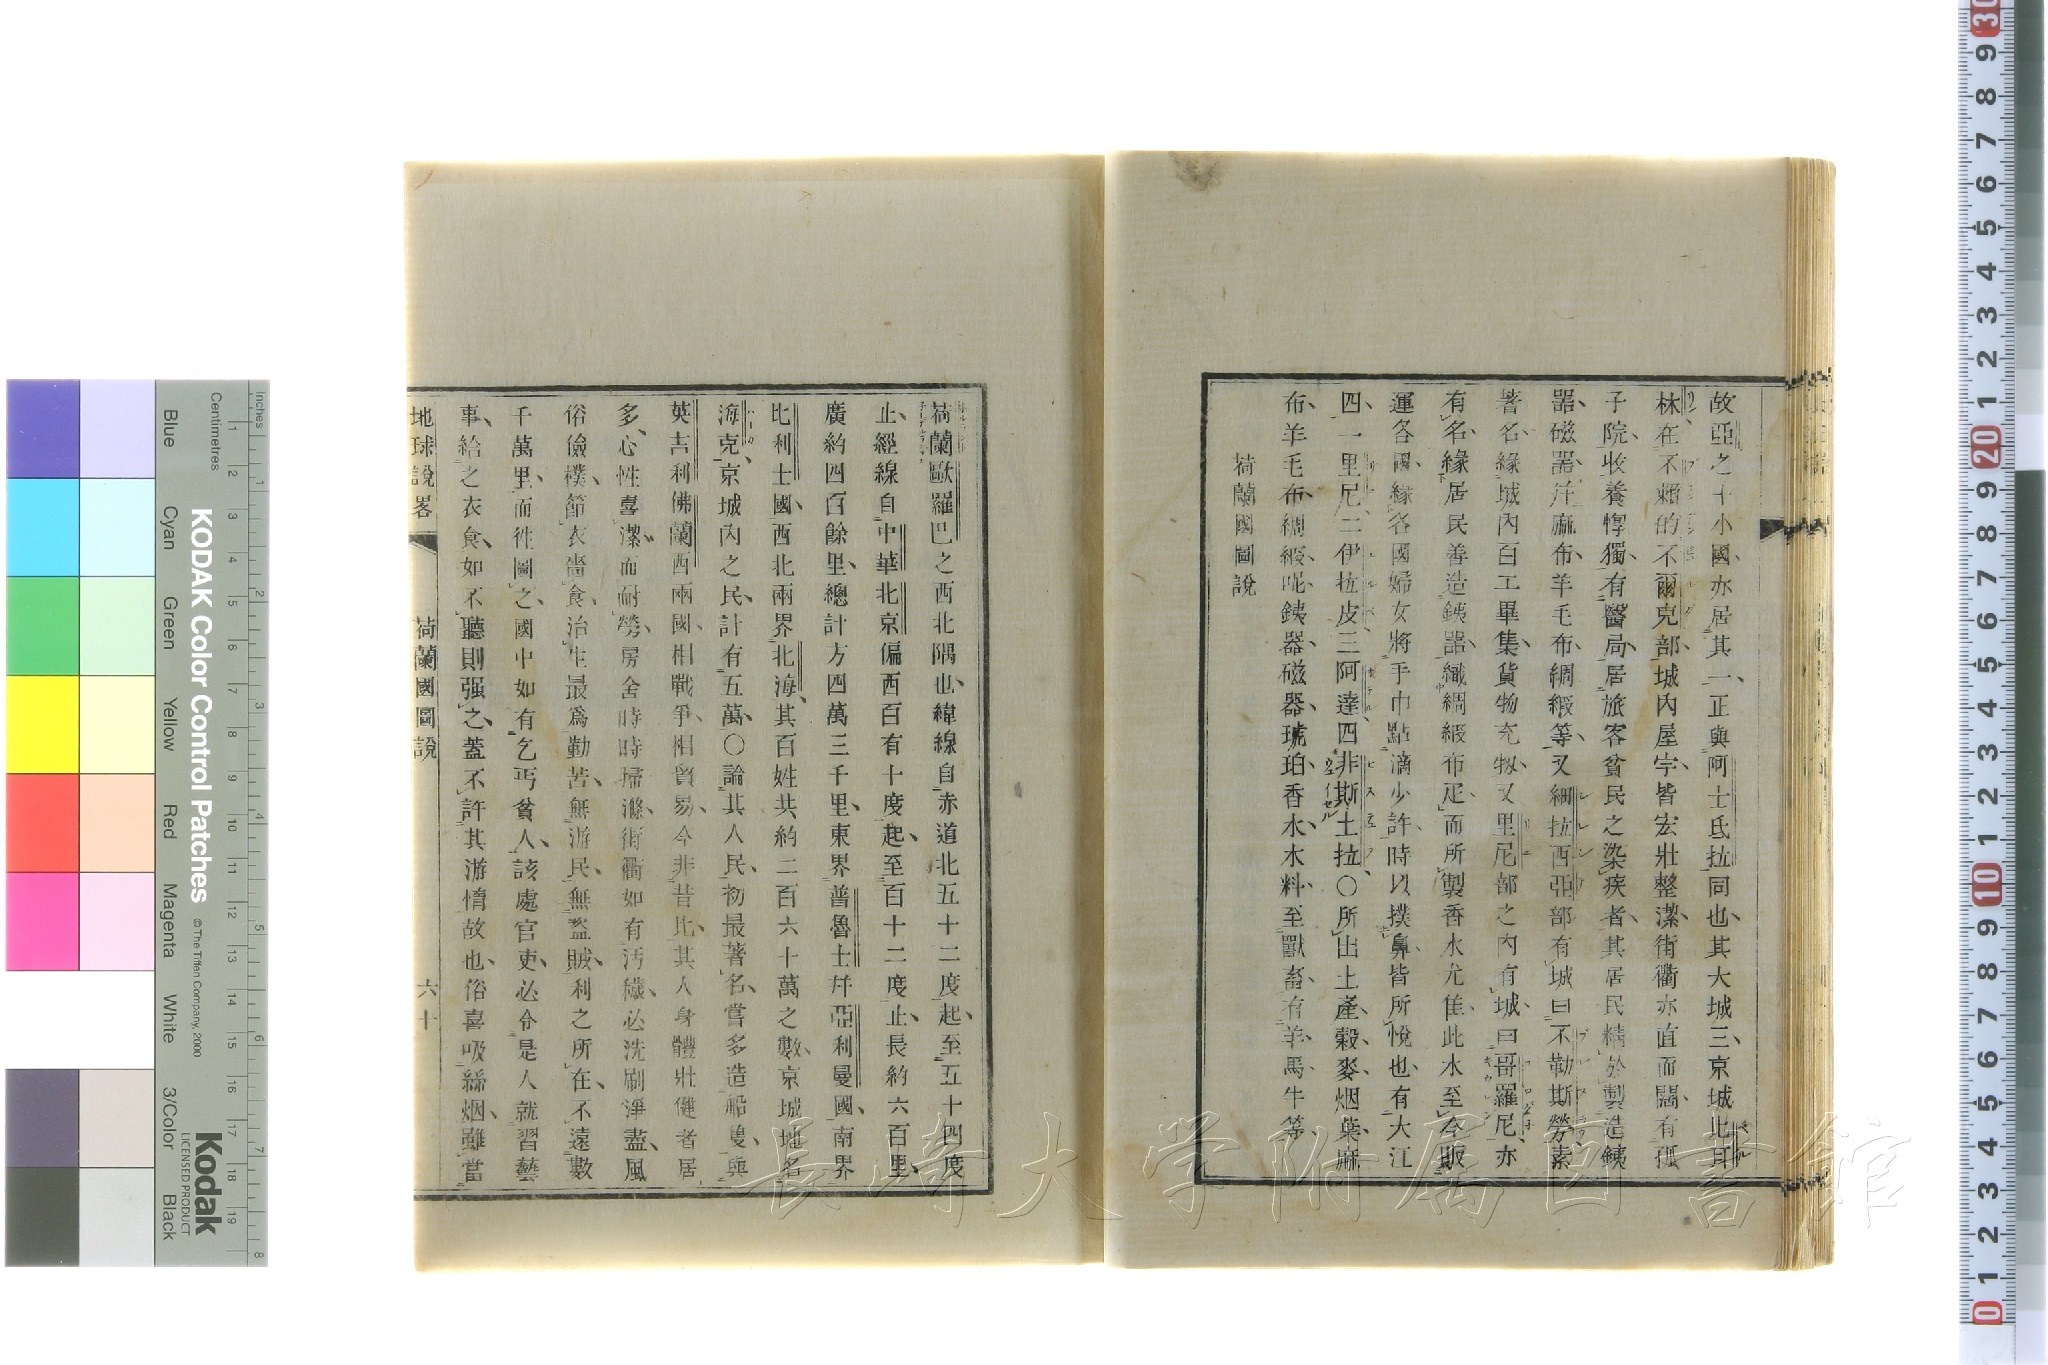 故亞之十小國亦居其一正與阿士氐拉同也其大城三京城北耳
林在不賴的不爾克部城內屋宇皆宏壯整潔街衢亦直而闊有孤
子院收養惸獨有醫局居旅客貧民之染疾者其居民精於製造銕
器磁器并麻布羊毛布綢緞等又細拉西亞部有城曰不勒斯勞素
著名緣城內百工畢集貨物充牣又里尼部之內有城曰哥羅尼亦
有名緣居民善造銕器織綢緞布疋而所製香水尤佳此水至今販
運各國緣各國婦女將手巾點滴少許時以撲鼻皆所悅也有大江
四一里尼二伊拉皮三阿達四非斯土拉〇所出土產穀麥烟葉麻
布羊毛布綢緞呢銕器磁器琥珀香水木料至獸畜有羊馬牛等
荷蘭國圖說
荷蘭歐羅巴之西北隅也緯線自赤道北五十二度起至五十四度
止經線自中華北京偏西百有十度起至百十二度止長約六百里
廣約四百餘里總計方四萬三千里東界普魯士并亞利曼國南界
比利士國西北兩界北海其百姓共約二百六十萬之數京城地名
海克京城內之民計有五萬〇論其人民初最著名嘗多造船隻與
英吉利佛蘭西兩國相戰爭相貿易今非昔比其人身體壯健者居
多心性喜潔而耐勞房舍時時掃滌街衢如有汚穢必洗刷淨盡風
俗儉樸節衣嗇食治生最爲勤苦無游民無盜賊利之所在不遠數
千萬里而徃圖之國中如有乞丐貧人該處官吏必令是人就習藝
事給之衣食如不聽則强之蓋不許其游惰故也俗喜吸絲烟雖當
地球說畧 荷蘭國圖說 六十
長崎大学附属図書館
KODAK Color Control Patches
© The Tiffen Company, 2000
Kodak
LICENSED PRODUCT
Inches
Centimetres
Blue Cyan Green Yellow Red Magenta White 3/Color Black